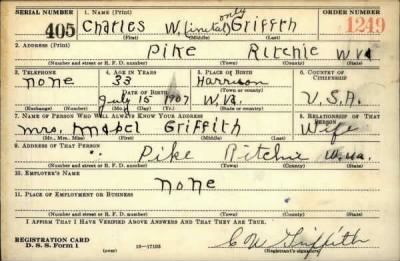 SERIAL NUMBER 1. NAME (Print) ORDER NUMBER
405 Charles W. (initial only) Griffith 1249
(First) (Middle) (Last)
2. ADDRESS (Print)
Pike Ritchie W Va
(Number and street or R. F. D. number) (Town) (County) (State)
3. TELEPHONE 4. AGE IN YEARS 5. PLACE OF BIRTH 6. COUNTRY OF CITIZENSHIP
none 33 Harrison
DATE OF BIRTH (Town or county)
July 15 1907 W.Va. U.S.A.
(Exchange) (Number) (Mo.) (Day) (Yr.) (State or country)
7. NAME OF PERSON WHO WILL ALWAYS KNOW YOUR ADDRESS 8. RELATIONSHIP OF THAT PERSON
Mrs. Mabel Griffith Wife
(Mr., Mrs., Miss) (First) (Middle) (Last)
9. ADDRESS OF THAT PERSON
Pike Ritchie W.Va.
(Number and street or R. F. D. number) (Town) (County) (State)
10. EMPLOYER'S NAME
None
11. PLACE OF EMPLOYMENT OR BUSINESS
(Number and street or R. F. D. number) (Town) (County) (State)
I AFFIRM THAT I HAVE VERIFIED ABOVE ANSWERS AND THAT THEY ARE TRUE.
REGISTRATION CARD
D. S. S. Form 1 16—17105 C W Griffith
(Registrant's signature)